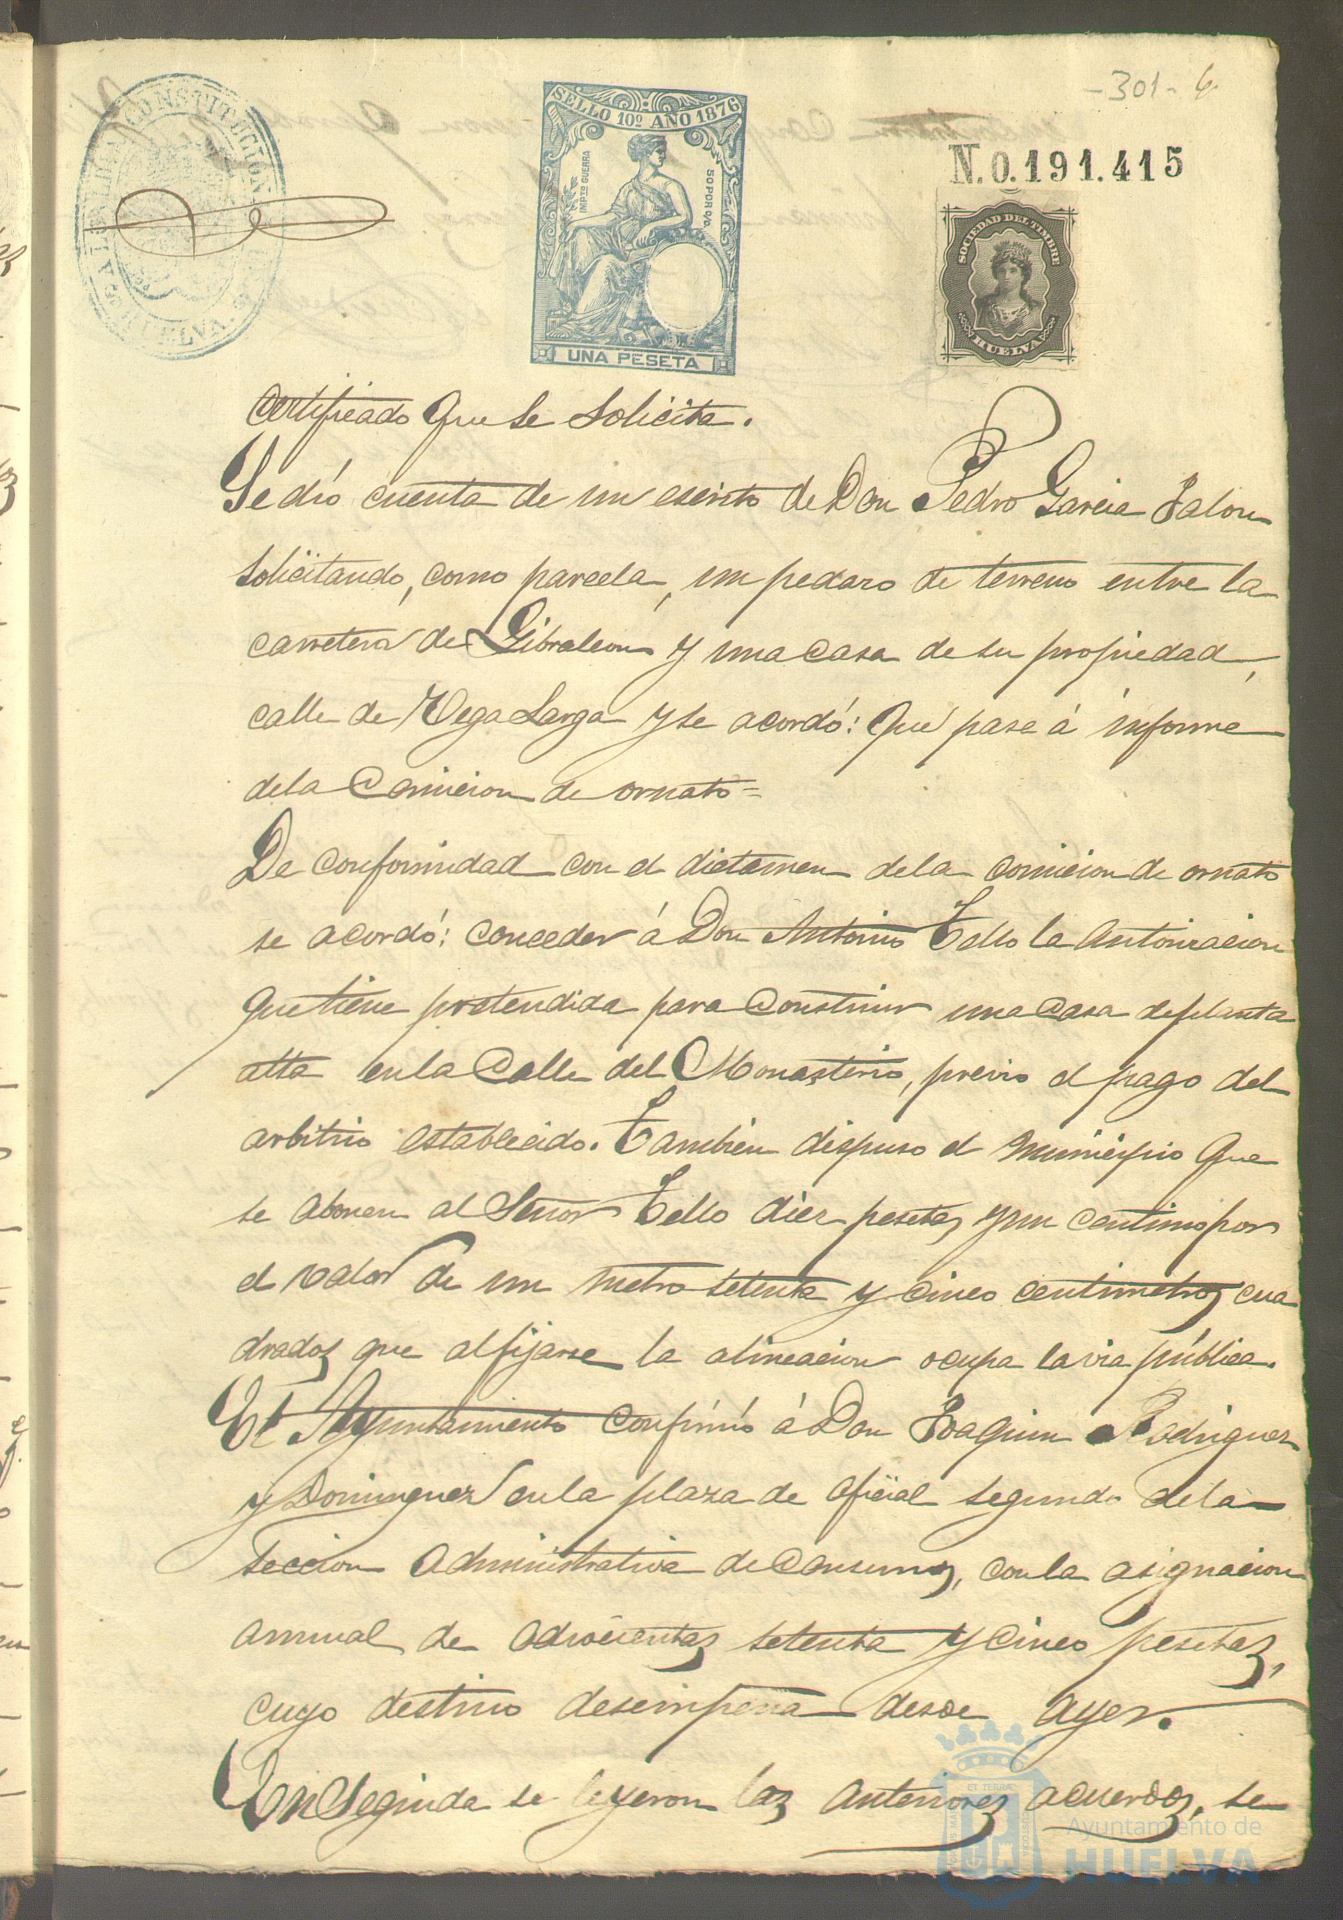 -301- 6
ALCALDIA CONSTITUCIONAL DE HUELVA.
SELLO 10º AÑO 1876
IMPTO GUERRA
50 POR 0/0
UNA PESETA
N.0.191.415
SOCIEDAD DEL TIMBRE
HUELVA
Certificado que se solicita.
Se dió cuenta de un escrito de Don Pedro Garcia Jalon
solicitando, como parcela, un pedazo de terreno entre la
carretera de Gibraleon y una casa de su propiedad,
calle de Vega Larga y se acordó: Que pase á informe
de la Comicion de ornato=
De conformidad con el dictamen de la comicion de ornato
se acordó: conceder á Don Antonio Tello la autorizacion
que tiene pretendida para construir una casa de planta
alta en la Calle del Monasterio, previo el pago del
arbitrio establecido. Tambien dispuso el Municipio que
se abonen al Señor Tello diez pesetas y un centimo por
el valor de un metro setenta y cinco centimetros cua
drados que al fijarse la alineacion ocupa la via pública.
El Ayuntamiento confirió á Don Joaquin Rodriguez
y Dominguez en la plaza de oficial segundo de la
seccion administrativa de Consumos, con la asignacion
annual de ochocientas setenta y cinco pesetas,
cuyo destino desempeña desde ayer.
En Seguida se leyeron las anteriores acuerdos, se
ET TERRÆ
Ayuntamiento de
HUELVA